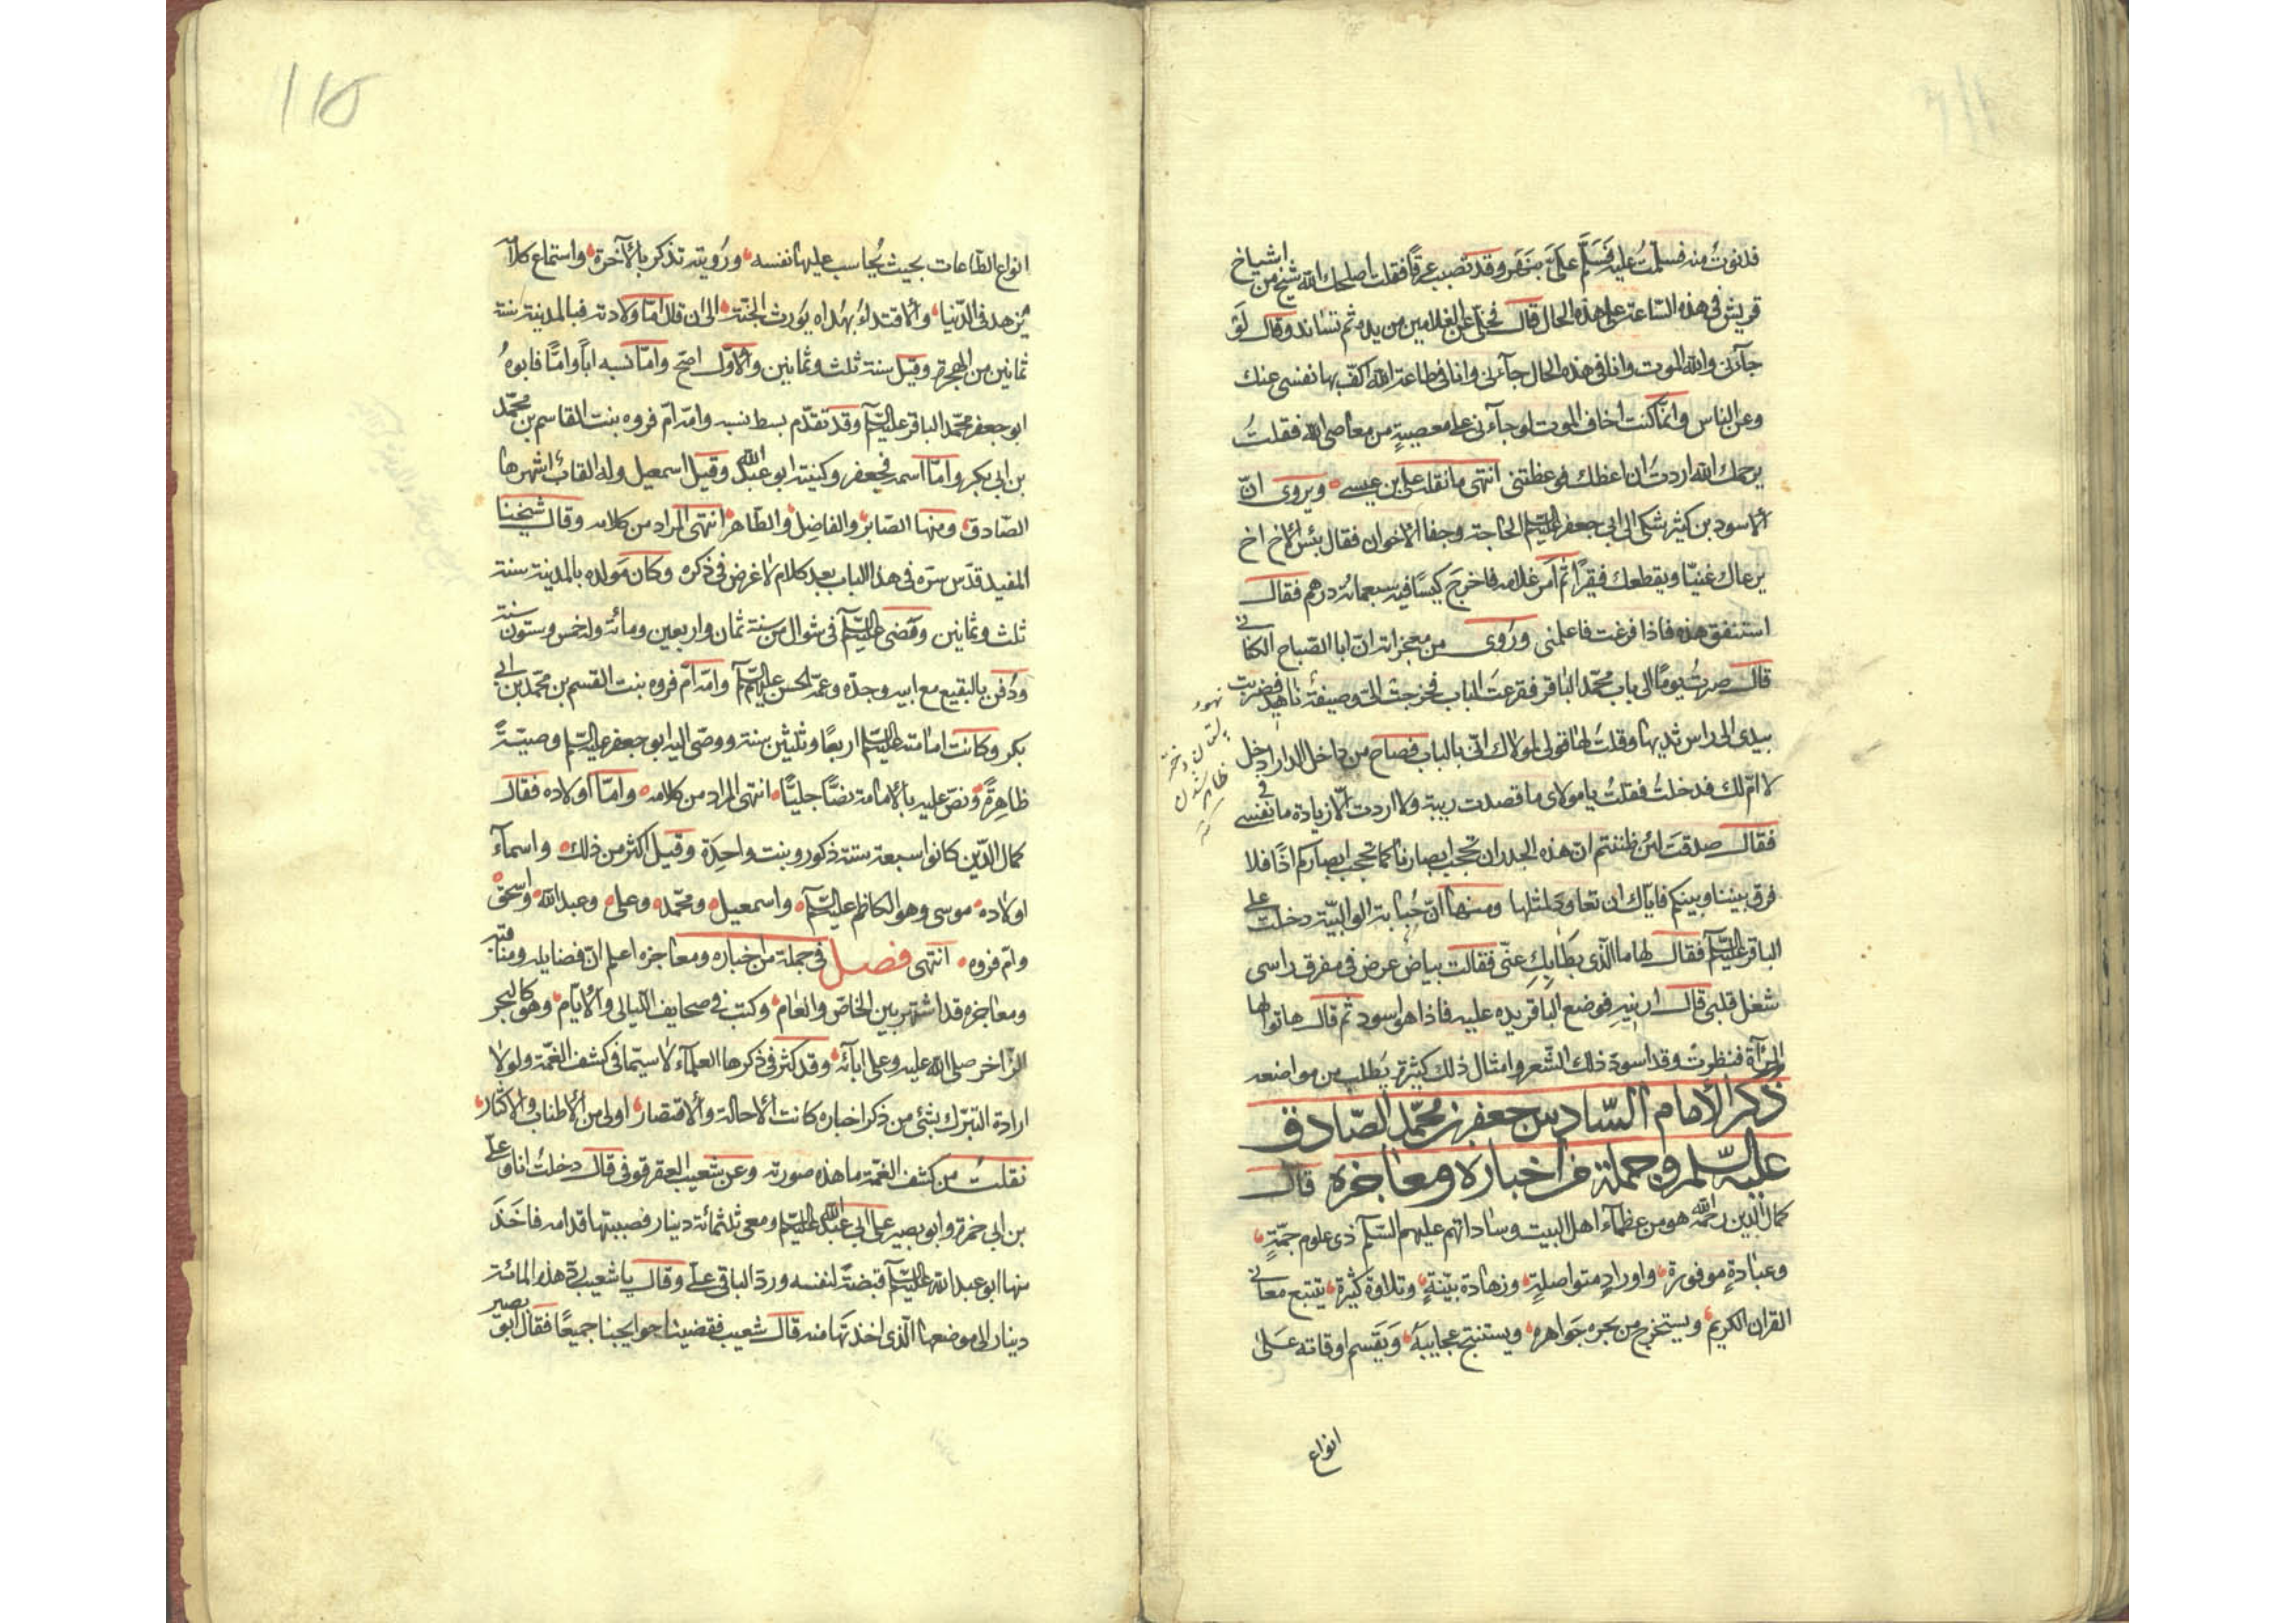 فدنوت منه فسلمت عليه فسلم على بنهر وقد تصبب عرقا فقلت اصلحك الله شيخ من اشياخ
قريش في هذه الساعة على هذه الحال قال فخلى عن الغلامين من يده ثم تساند وقال لو
جاءنى والله الموت وانا فى هذه الحال جاءنى وانا فى طاعة الله اكف بها نفسى عنك
وعن الناس وانما كنت اخاف الموت لو جاءنى على معصية من معاصى الله فقلت
يرحمك الله اردت ان اعظك فوعظتنى انتهى ما نقله على بن عيسى ويروى ان
الاسود بن كثير شكى الى ابى جعفر عليه السلم الحاجة وجفا الاخوان فقال بئس الاخ اخ
يرعاك غنيا ويقطعك فقيرا ثم امر غلامه فاخرج كيسا فيه سبعمائة درهم فقال
استنفق هذه فاذا فرغت فاعلمنى وروى من معجزاته ان ابا الصباح الكنانى
قال صرت يوما الى باب محمد الباقر فقرعت الباب فخرجت الى وصيفة ناهد فضربت
بيدى الى راس ثديها وقلت لها قولى لمولاك انى بالباب فصاح من داخل الدار ادخل
لا ام لك فدخلت فقلت يا مولاى ما قصدت ريبة ولا اردت الا زيادة ما فى نفسى
فقال صدقت لئن ظننتم ان هذه الجدران تحجب ابصارنا كما تحجب ابصاركم اذا فلا
فرق بيننا وبينكم فاياك ان تعاود لمثلها ومنها ان حبابة الوالبية دخلت على
الباقر عليه السلم فقال لها ما الذى بطا بك عنى فقالت بياض عرض فى مفرق راسى
شغل قلبى قال ارنيه فوضع الباقر يده عليه فاذا هو اسود ثم قال هاتوا لها
المرآة فنظرت وقد اسود ذلك الشعر وامثال ذلك كثيرة يطلب من مواضعه
ذكر الامام السادس جعفر بن محمد الصادق
عليه السلم وجملة من اخباره ومعاجزه قال
كمال الدين رحمه الله هو من عظماء اهل البيت وساداتهم عليهم السلم ذى علوم جمة
وعبادة موفورة واوراد متواصلة وزهادة بينة وتلاوة كثيرة يتتبع معانى
القران الكريم ويستخرج من بحره جواهره ويستنتج عجايبه ويقسم اوقاته على
انواع
انواع الطاعات بحيث يحاسب عليها نفسه ورؤيته تذكر بالآخرة واستماع كلامه
يزهد فى الدنيا والاقتداء بهداه يورث الجنة الى ان قال اما ولادته فبالمدينة سنة
ثمانين من الهجرة وقيل سنة ثلث وثمانين والاول اصح واما نسبه ابا واما فابوه
ابو جعفر محمد الباقر عليه السلم وقد تقدم بسط نسبه وامه ام فروه بنت القاسم بن محمد
بن ابى بكر واما اسمه فجعفر وكنيته ابو عبد الله وقيل اسمعيل وله القاب اشهرها
الصادق ومنها الصابر والفاضل والطاهر انتهى المراد من كلامه وقال شيخنا
المفيد قدس سره فى هذا الباب بعد كلام لا غرض فى ذكره وكان مولده بالمدينة سنة
ثلث وثمانين ومضى عليه السلم فى شوال من سنة ثمان واربعين ومائة وله خمس وستون سنة
ودفن بالبقيع مع ابيه وجده وعمه الحسن عليهم السلم وامه ام فروه بنت القسم بن محمد بن ابى
بكر وكانت امامته عليه السلم اربعا وثلثين سنة ووصى اليه ابو جعفر عليه السلم وصية
ظاهرة ونص عليه بالامامة نصا جليا انتهى المراد من كلامه واما اولاده فقال
كمال الدين كانوا سبعة ستة ذكور وبنت واحدة وقيل اكثر من ذلك واسماء
اولاده موسى وهو الكاظم عليه السلم واسمعيل ومحمد وعلى وعبد الله واسحق
وام فروه انتهى فصل فى جملة من اخباره ومعاجزه اعلم ان فضايله ومناقبه
ومعاجزه قد اشتهر بين الخاص والعام وكتب فى صحايف الليالى والايام وهو كالبحر
الزاخر صلى الله عليه وعلى ابائه وقد كثر فى ذكرها العلماء لا سيما فى كشف الغمة ولولا
ارادة التبرك بشئ من ذكر اخباره كانت الاحالة والاقتصار اولى من الاطناب والاكثار
نقلت من كشف الغمة ما هذه صورته وعن شعيب العقرقوفى قال دخلت انا وعلى
بن ابى حمزة وابو بصير على ابى عبد الله عليه السلم ومعى ثلثمائة دينار فصببتها قدامه فاخذ
منها ابو عبد الله عليه السلم قبضة لنفسه ورد الباقى على وقال يا شعيب رد هذه المائة
دينار الى موضعها الذى اخذتها منه قال شعيب فقضينا حوايجنا جميعا فقال ابو بصير